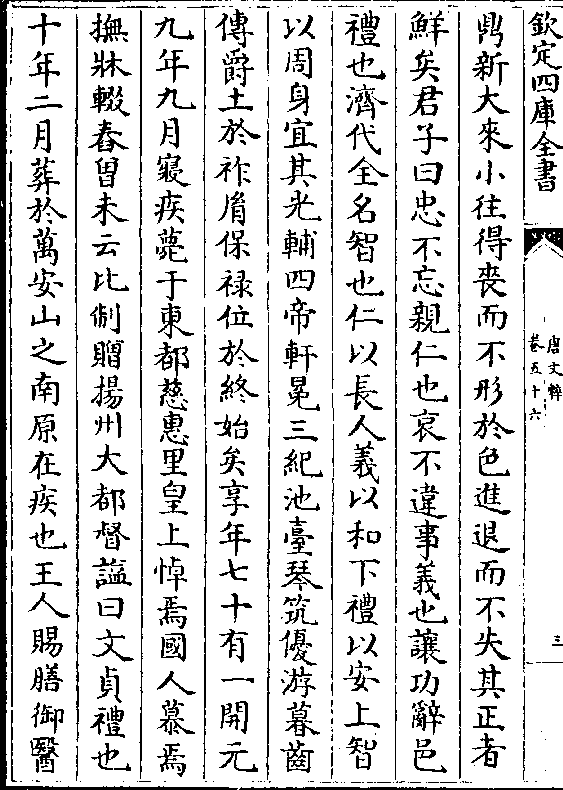 欽定四庫全書
唐文粹
卷五十六
三
鼎新大來小往得喪而不形於色進退而不失其正者
鮮矣君子曰忠不忘親仁也哀不違事義也讓功辭邑
禮也濟代全名智也仁以長人義以和下禮以安上智
以周身宜其光輔四帝軒冕三紀池臺琴筑優游暮齒
傳爵土於祚𦙍保禄位於終始矣享年七十有一開元
九年九月寢疾薨于東都慈惠里皇上悼焉國人慕焉
撫牀輟舂曽未云比制贈揚州大都督諡曰文貞禮也
十年二月葬於萬安山之南原在疾也王人賜膳御醫